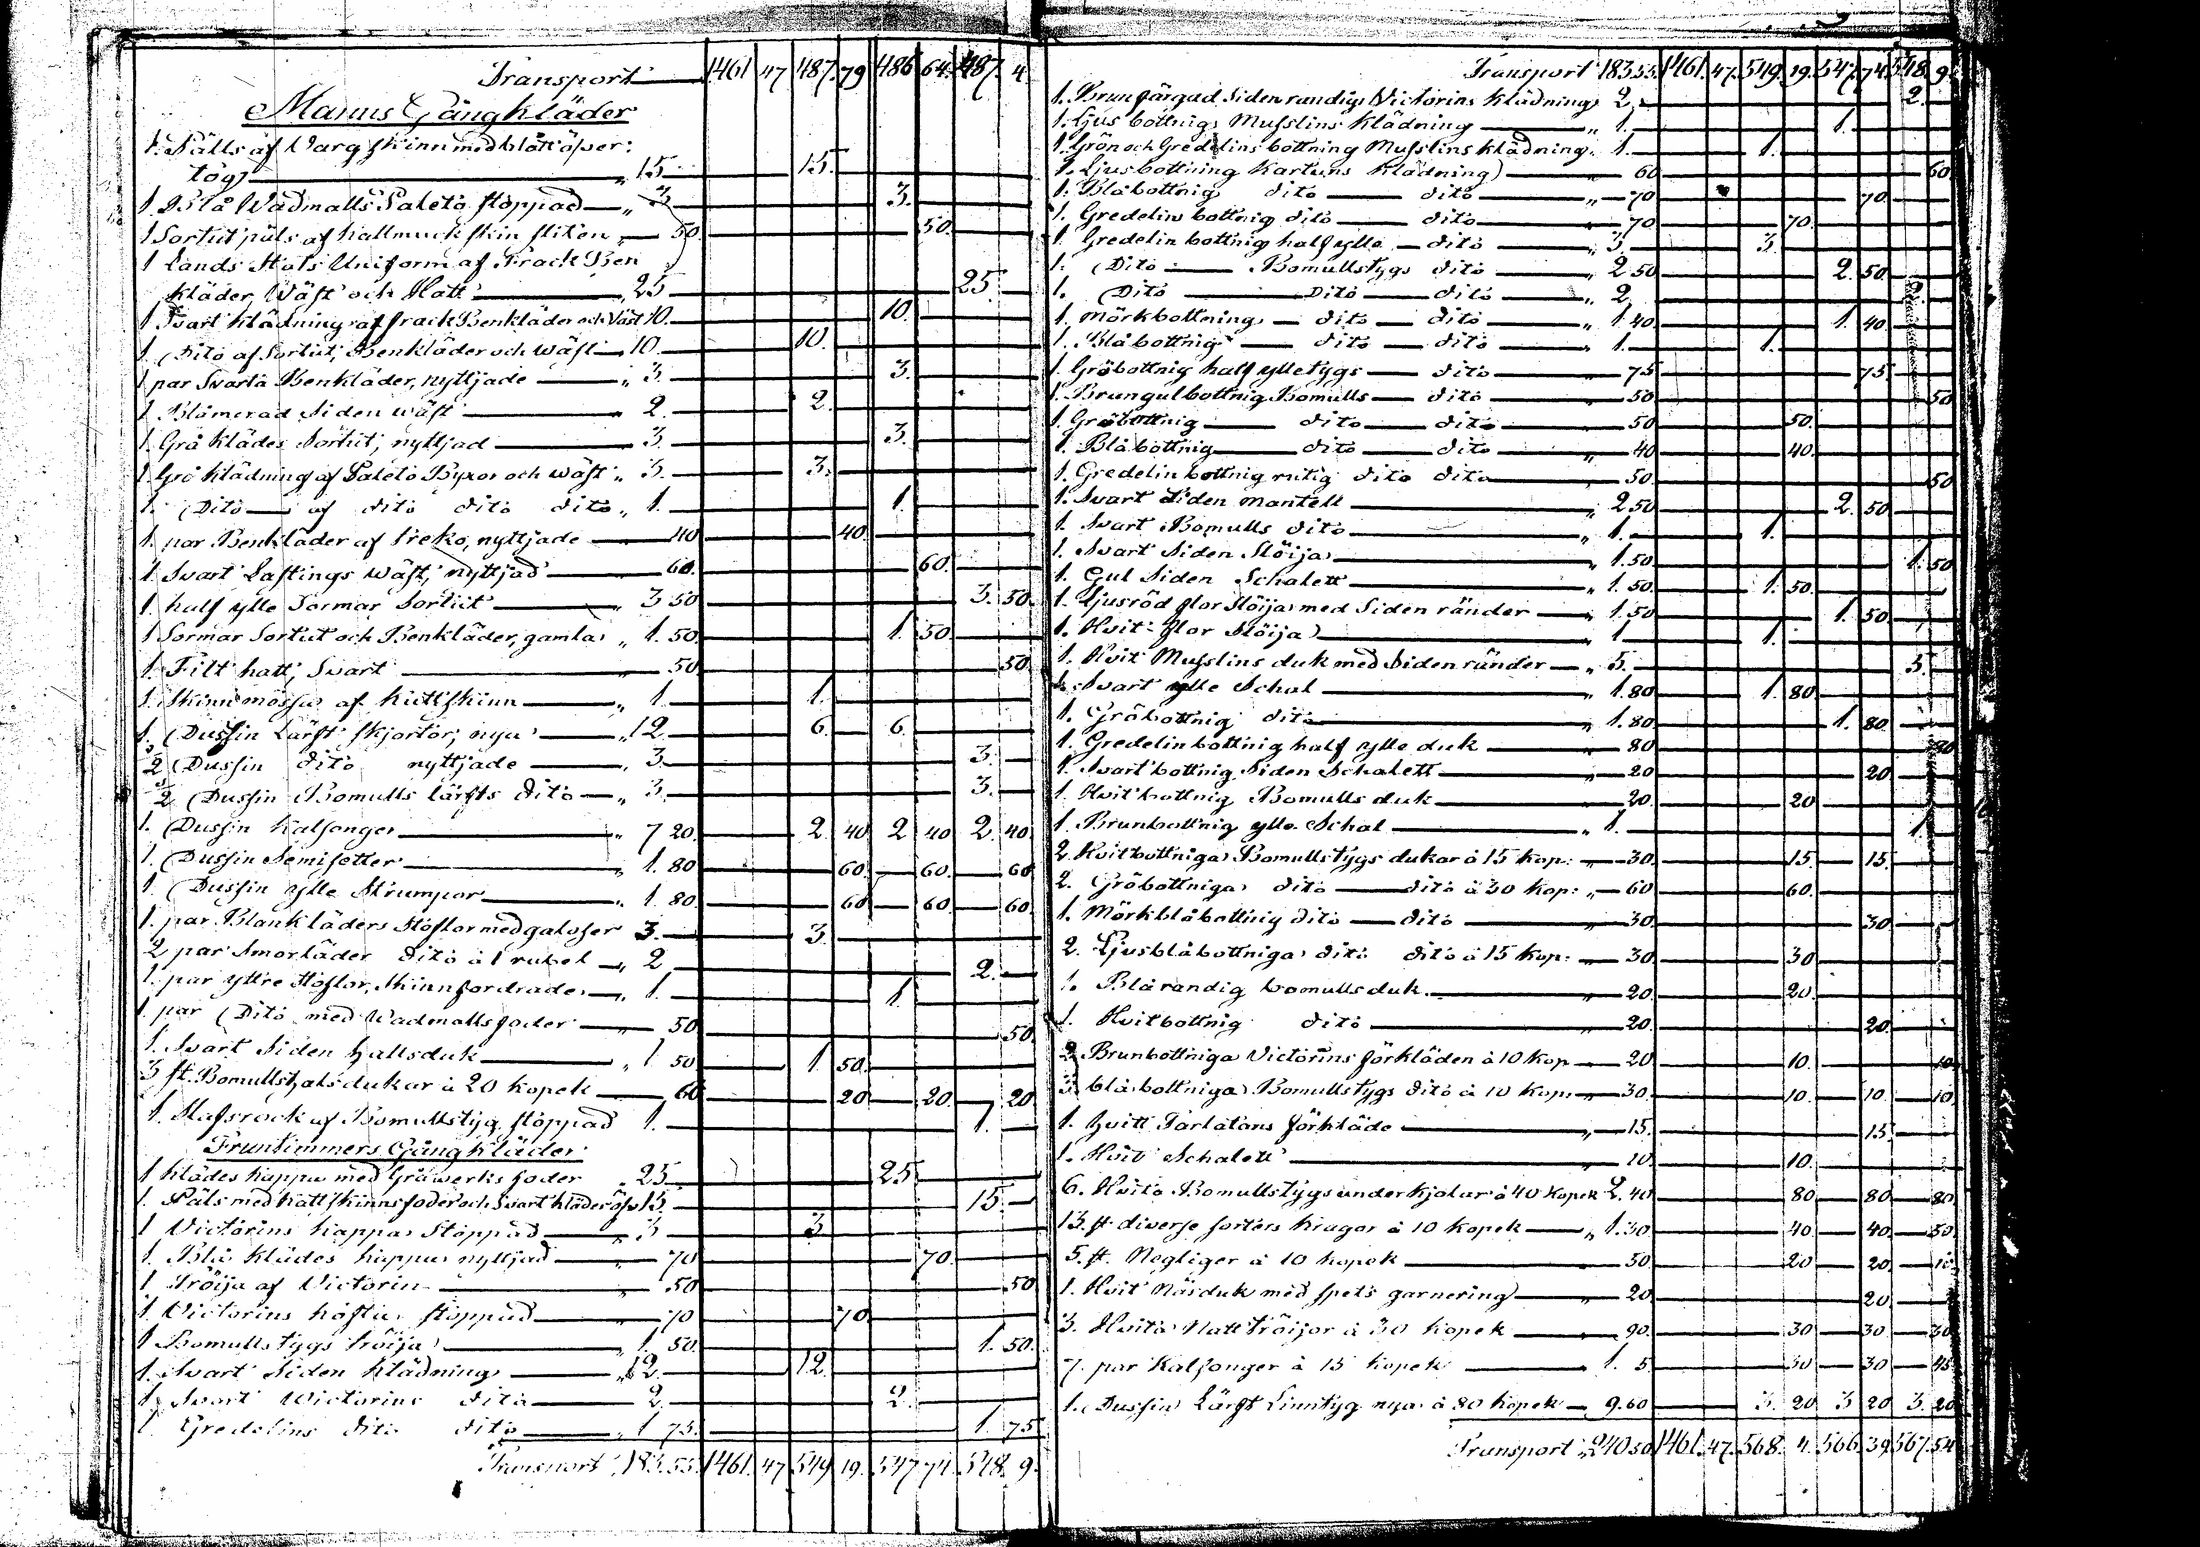 Transport 1461 47 487. 79 486 64. 487. 4.
Manns Gångkläder
1. Pälls af Vargskinn med blått öfver:
tög „ 15 15.
1 Blå Wadmalls Paletå stoppad „ 3 3.
1 Sortut päls af kallmuck skin sliten „ 50. 50.
1 Lands Stats Uniform af Frack Ben
kläder, Wäst och Hatt „ 25 25.
1 Svart klädning af frack Benkläder och Väst 10. 10.
1. Dito af Sortut, Benkläder och wäst 10. 10.
1 par Svarta Benkläder, nyttjade „ 3. 3.
1. Blomerad Siden wäst „ 2. 2.
1. Grå klädes Sortut, nyttjad „ 3. 3.
1 Grå klädning af Paletå Byxor och wäst „ 3. 3.
1. Dito af dito dito dito „ 1. 1.
1. par Benkläder af treko, nyttjade 40 40.
1 Svart Lastings wäst, nyttjad 60. 60.
1. half ylle Sormar Sortut „ 3 50 3. 50.
1 Sormar Sortut och Benkläder, gamla „ 1. 50. 1. 50.
1. Filt hatt, Svart „ 50 50.
1. Skinnmössa af kuttskinn „ 1. 1.
1. Dussin Lärft skjortor, nya „ 12. 6. 6.
½ Dussin dito nyttjade „ 3. 3.
½ Dussin Bomulls lärfts dito „ 3. 3.
1. Dussin Kalsonger „ 7 20. 2. 40 2 40 2. 40
1. Dussin Semisetter „ 1. 80 60. 60. 60
1. Dussin ylle Strumpor „ 1. 80. 60 60 60
1. par Blankläders Stöflor med galoser 3. 3.
2 par Smorläder dito à 1 rubel „ 2 2.
1. par yttre Stöflor, skinnfordrade „ 1. 1.
1 par Dito med Wadmalls foder „ 50 50.
1. Svart Siden hallsduk „ 1 50 1 50.
3 st. Bomulls halsdukar à 20 kopek 60 20 20. 20
1. Nafsrock af Bomullstyg, stoppad 1. 1.
Fruntimmers Gångkläder
1 klädes kappa med Gråwerks foder „ 25 25
1. Päls med kattskinns foder och svart kläde öfv 15. 15.
1 Victorins kappa Stoppad „ 3 3
1. Blå klädes kappa nyttjad „ 70 70.
1 Tröija af Victorin „ 50 50
1 Victorins höftu stoppad 70 70.
1 Bomullstygs tröija 1. 50. 1. 50.
1. Svart Siden klädning „ 12. 12.
1 Svart Victorins dito 2. 2.
1 Gredelins dito dito „ 1 75. 1. 75
Transport 183. 55. 1461. 47 549 19. 547 74. 548. 9.
Transport 183.55. 1461. 47. 549. 19. 547. 74. 548. 9.
1. Brunfärgad Sidenrandig Victorins klädning 2. 2.
1. Ljusbottnig Musslins klädning „ 1. 1.
1. Grön och Gredelins bottning Musslins klädning. 1. 1.
1. Ljusbottning Kartuns klädning „ 60 60
1. Blåbottnig dito dito „ 70 70.
1. Gredelins bottnig dito dito „ 70 70.
1. Gredelin bottnig half ylle dito „ 3. 3.
1. Dito Bomullstygs dito „ 2 50 2. 50
1. Dito Dito dito „ 2 2.
1. Mörkbottning dito dito „ 1 40 1. 40.
1. Blåbottnig dito dito „ 1. 1.
1. Gråbottnig half ylletygs dito „ 75 75.
1. Brungulbottnig Bomulls dito 50 50
1. Gråbottnig dito dito 50 50.
1. Blåbottnig dito dito 40 40.
1. Gredelin bottnig rutig dito dito 50. 50
1. Svart Siden mantell „ 2 50 2. 50.
1. Svart Bomulls dito „ 1. 1.
1. Svart Siden Slöija „ 1.50 1. 50
1. Gul Siden Schalett „ 1. 50. 1. 50.
1. Ljusröd flor Slöija med Siden ränder „ 1. 50 1. 50.
1. Hvit flor Slöija „ 1 1.
1. Hvit Musslins duk med Sidenränder „ 5. 5.
1. Svart ylle Schal „ 1. 80 1. 80
1. Gråbottnig dito „ 1. 80. 1. 80.
1. Gredelin bottnig half ylle duk „ 80 80
1. Svartbottnig Siden Schalett „ 20 20.
1. Hvitbottnig Bomulls duk „ 20. 20
1. Brunbottnig ylle Schal „ 1. 1.
2. Hvitbottniga Bomullstygs dukar à 15 kop: „ 30. 15 15.
2. Gråbottniga dito dito à 30 kop: „ 60 60.
1. Mörkblåbottnig dito dito „ 30. 30.
2. Ljusblåbottniga dito dito à 15 kop: „ 30. 30
1. Blårandig bomullsduk. „ 20 20.
1. Hvitbottnig dito „ 20. 20.
2 Brunbottniga Victorins förkläden à 10 kop 20 10. 10
3. blåbottniga Bomullstygs dito à 10 kop: „ 30. 10. 10. 10
1. hvitt Tarlatans förkläde „ 15. 15.
1. Hvit Schalett „ 10 10.
6. Hvita Bomullstygs underkjolar à 40 kopek 2. 40 80 80 80
13. st. diverse sorters kragar à 10 kopek „ 1. 30 40 40. 50
5. st. Negliger à 10 kopek „ 50 20 20. 10
1. Hvit Näsduk med spets garnering „ 20 20.
3. Hvita Nattröijor à 30 kopek „ 90. 30 30 30
7. par Kalsonger à 15 kopek „ 1. 5. 30 30 45
1. Dussin Lärft Linntyg nya à 80 kopek 9.60 3. 20 3 20 3. 20
Transport 240 50 1461. 47. 568. 4. 566. 39 567. 54